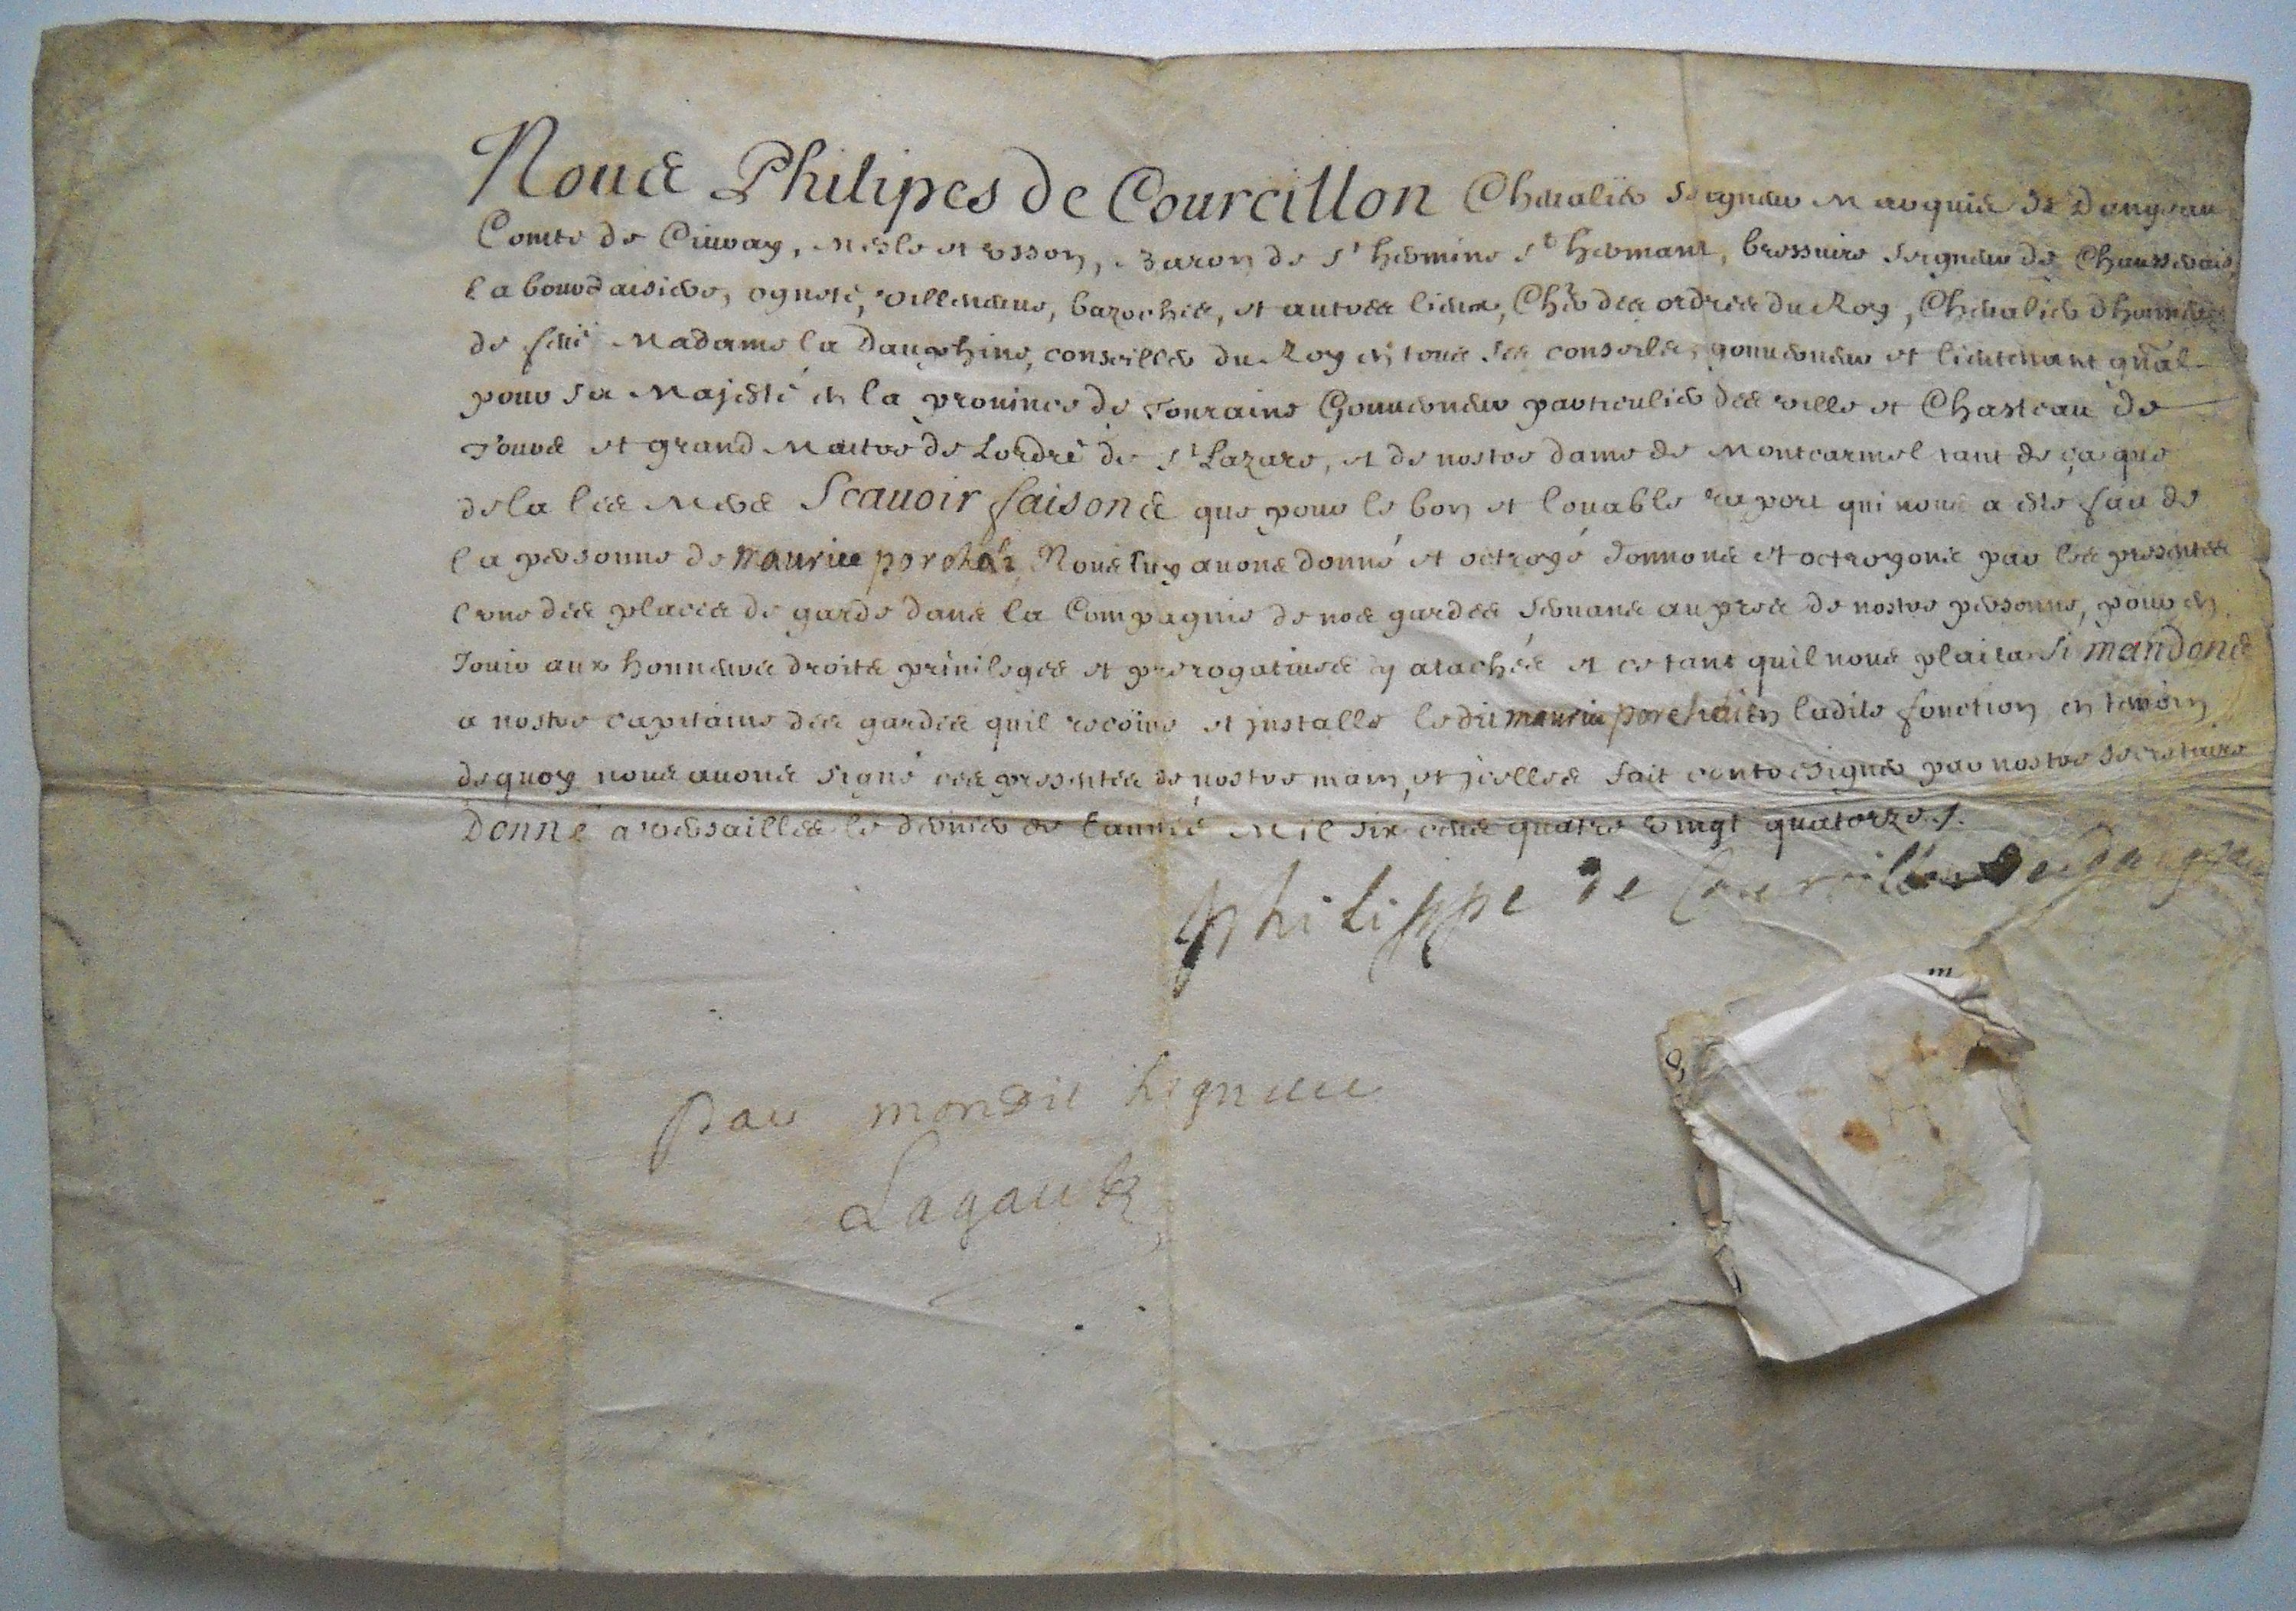 Nous Philipes de Courcillon Cheualier Seigneur Marquis de Dangeau
Comte de Ciuray, Mesle et Usson, Baron de St hermine St hermant, bressuire Seigneur de Chausserais,
la bourdaisiere, villeneuve, bazoches, et autres lieux, Chlr des ordres du Roy, Cheualier dhonneur
de feüe Madame la Dauphine, conseiller du Roy en tous ses conseils, gouuerneur et lieutenant gñal
pour Sa Majesté en la prouince de Touraine Gouuerneur particulier des ville et Chasteau de
Tours et grand Maitre de Lordre de St Lazare, et de nostre dame de Montcarmel tant de ça que
dela les Mers Scauoir faisons que pour le bon et louable raport qui nous a esté fait de
la personne de Nous luy auons donné et octroyé donnons et octroyons par les presentes
lune des places de garde dans la Compagnie de nos gardes seruans aupres de nostre personne, pour en
Jouir aux honneurs droits priuileges et prerogatiues y atachés et ce tant quil nous plaira Si mandons
a nostre capitaine des gardes quil recoiue et jnstalle ledit en ladite fonction en temoin
dequoy nous auons signé ces presentes de nostre main, et jcelles fait contresigner par nostre Secretaire
Donné a Versailles le dernier de Lannée Mil six cens quatre vingt quatorze./.
philippe de Courcillon de dangeau
m
Par mondit Segneur
Lagault